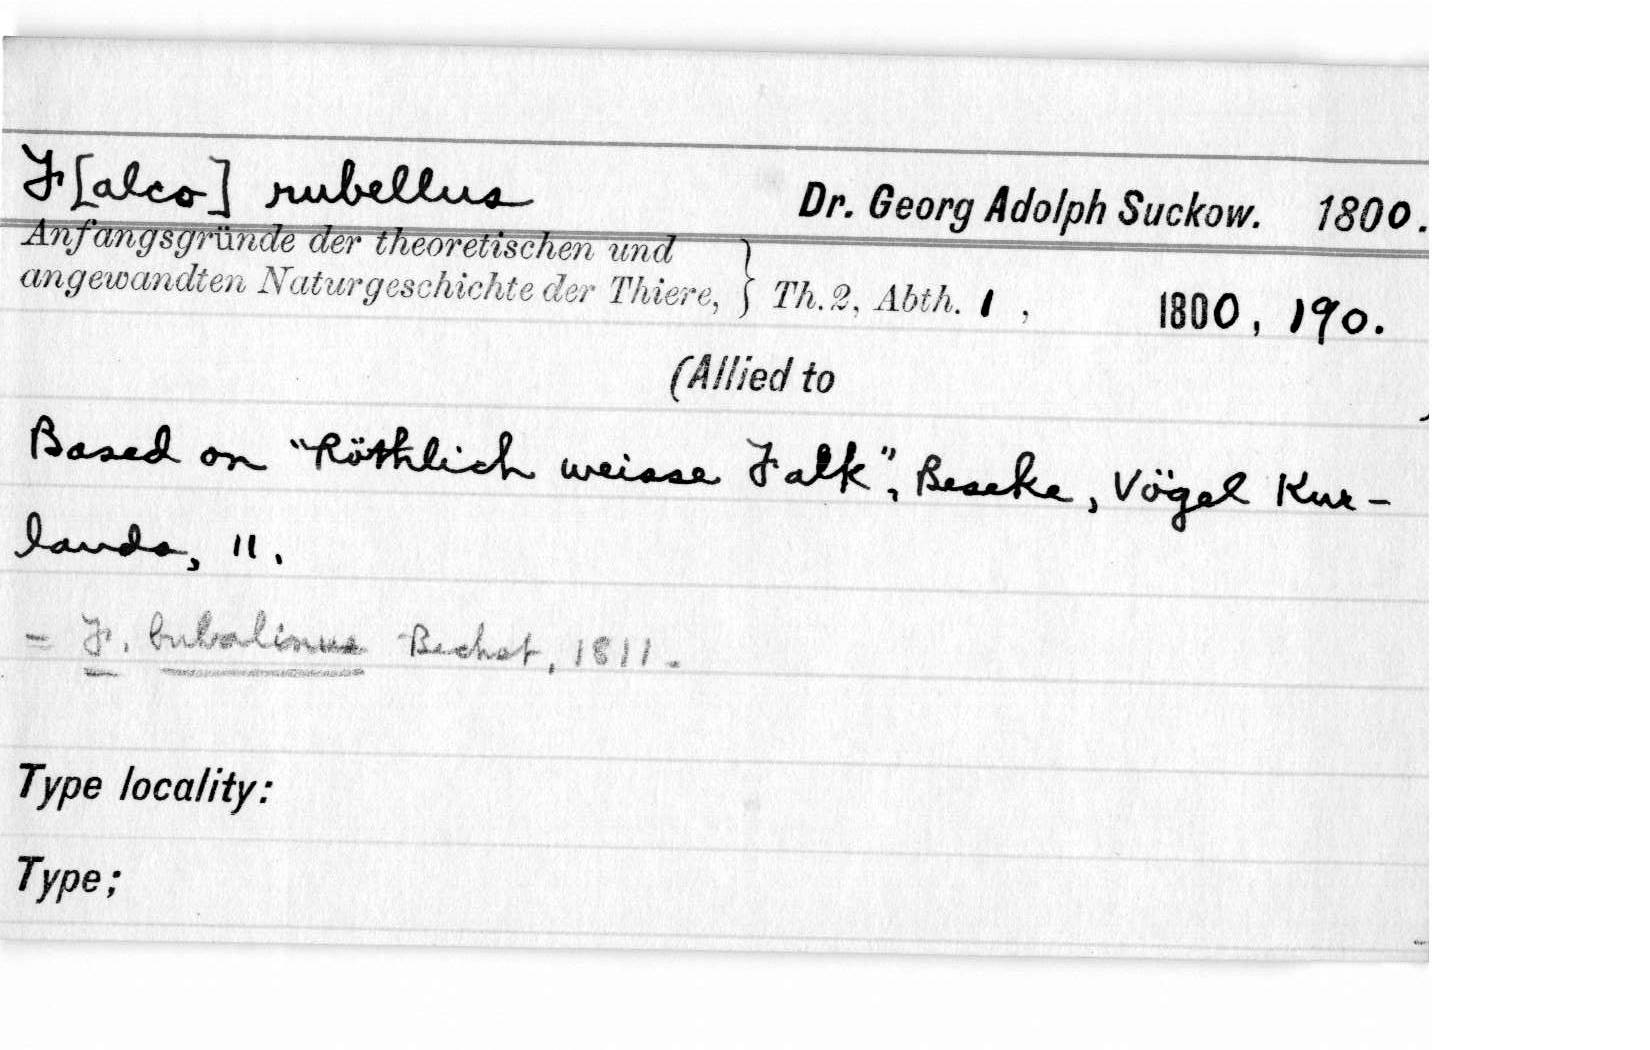 F[alco] rubellus Dr. Georg Adolph Suckow. 1800.
Anfangsgründe der theoretischen und
angewandten Naturgeschichte der Thiere, } Th. 2, Abth. 1 , 1800, 190.
(Allied to )
Based on "Röthlich weisse Falk", Beseke, Vögel Kur-
lands, 11.
= F. bubalinus Bechst, 1811.
Type locality:
Type;